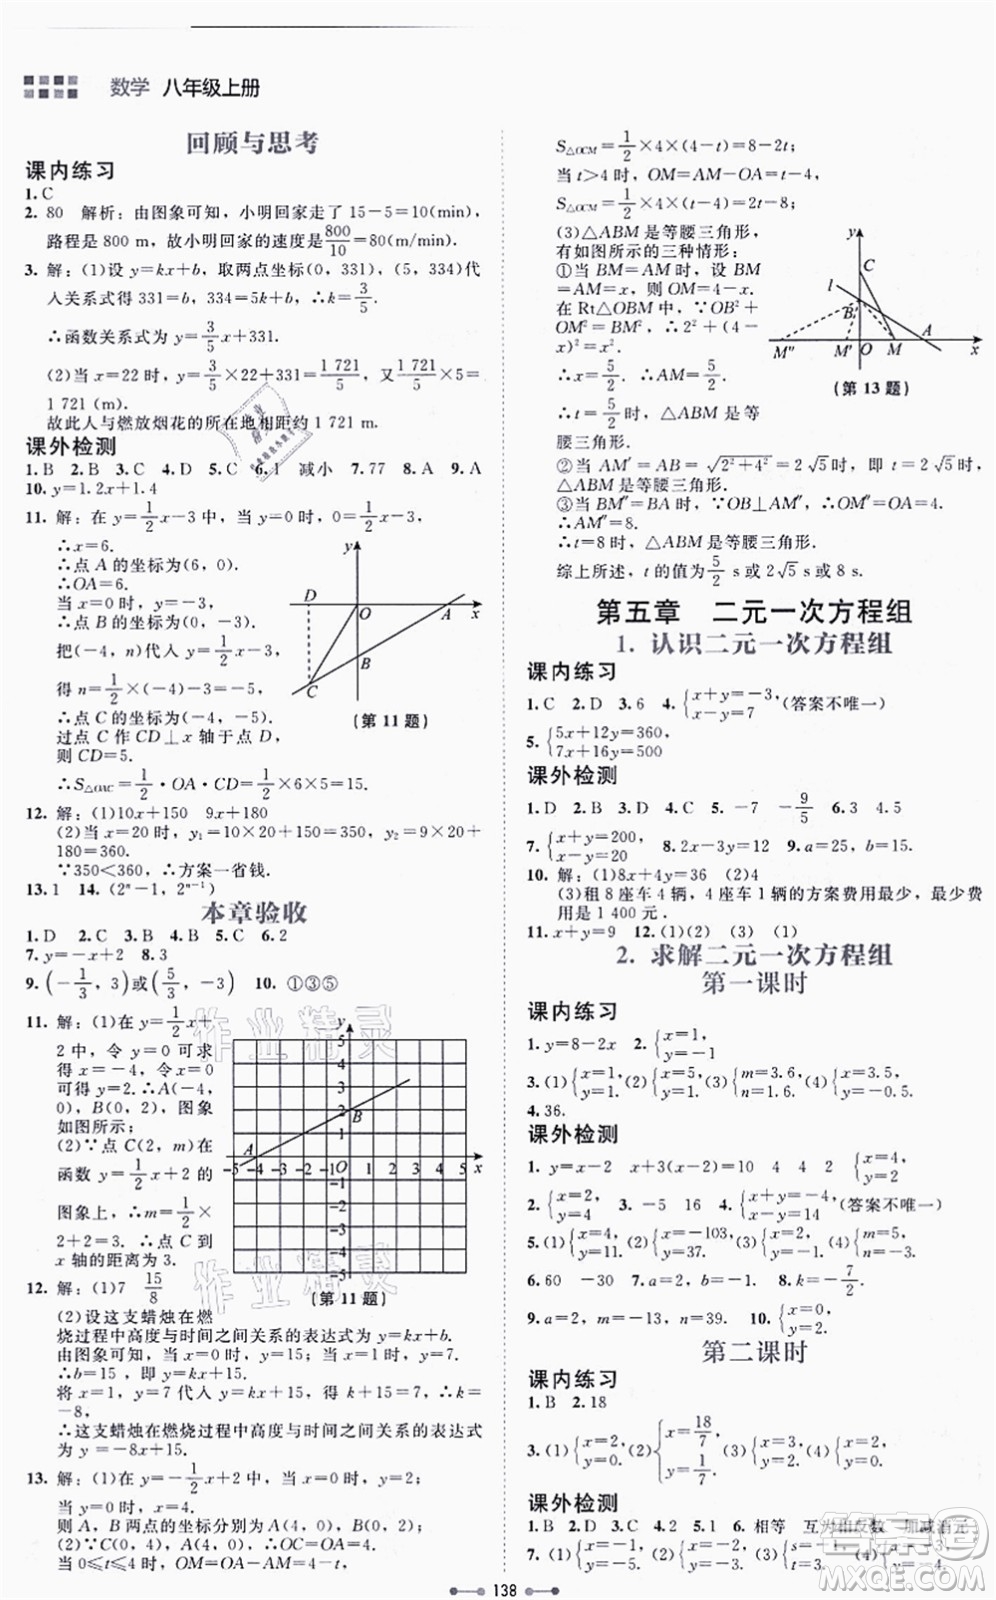 数学 八年级上册
回顾与思考
课内练习
1. C
2. 80 解析：由图象可知，小明回家走了 15－5＝10(min)，
路程是 800 m，故小明回家的速度是 800/10＝80(m/min).
3. 解：(1)设 y＝kx＋b，取两点坐标(0，331)，(5，334)代
入关系式得 331＝b，334＝5k＋b，∴k＝3/5.
∴函数关系式为 y＝3/5x＋331.
(2)当 x＝22 时，y＝3/5×22＋331＝1 721/5，又 1 721/5×5＝
1 721 (m).
故此人与燃放烟花的所在地相距约 1 721 m.
课外检测
1. B 2. B 3. C 4. D 5. C 6. 1 减小 7. 77 8. A 9. A
10. y＝1.2x＋1.4
11. 解：在 y＝1/2x－3 中，当 y＝0 时，0＝1/2x－3，
∴x＝6.
∴点 A 的坐标为(6，0).
∴OA＝6.
当 x＝0 时，y＝－3.
∴点 B 的坐标为(0，－3).
把(－4，n)代入 y＝1/2x－3，
得 n＝1/2×(－4)－3＝－5.
∴点 C 的坐标为(－4，－5).
过点 C 作 CD⊥x 轴于点 D，
则 CD＝5.
∴S△OAC＝1/2·OA·CD＝1/2×6×5＝15.
y D O A x B C
(第 11 题)
12. 解：(1)10x＋150 9x＋180
(2)当 x＝20 时，y₁＝10×20＋150＝350，y₂＝9×20＋
180＝360.
∵350＜360，∴方案一省钱.
13. 1 14. (2ⁿ－1，2ⁿ⁻¹)
本章验收
1. D 2. C 3. B 4. B 5. C 6. 2
7. y＝－x＋2 8. 3
9. (－1/3，3)或(5/3，－3) 10. ①③⑤
11. 解：(1)在 y＝1/2x＋
2 中，令 y＝0 可求
得 x＝－4，令 x＝0
可得 y＝2. ∴A(－4，
0)，B(0，2)，图象
如图所示：
(2)∵点 C(2，m)在
函数 y＝1/2x＋2 的
图象上，∴m＝1/2×
2＋2＝3. ∴点 C 到 x
轴的距离为 3.
y 5 4 3 2 1 A B
-5 -4 -3 -2 -1 O 1 2 3 4 5 x
-1 -2 -3 -4 -5
(第 11 题)
12. 解：(1)7 15/8
(2)设这支蜡烛在燃
烧过程中高度与时间之间关系的表达式为 y＝kx＋b.
由图象可知，当 x＝0 时，y＝15；当 x＝1 时，y＝7.
∴b＝15，∴y＝kx＋15.
将 x＝1，y＝7 代入 y＝kx＋15，得 7＝k＋15，∴k＝
－8.
∴这支蜡烛在燃烧过程中高度与时间之间关系的表达式
为 y＝－8x＋15.
13. 解：(1)在 y＝－1/2x＋2 中，当 x＝0 时，y＝2；
当 y＝0 时，x＝4，
则 A，B 两点的坐标分别为 A(4，0)，B(0，2).
(2)∵C(0，4)，A(4，0)，∴OC＝OA＝4.
当 0≤t≤4 时，OM＝OA－AM＝4－t，
S△OCM＝1/2×4×(4－t)＝8－2t；
当 t＞4 时，OM＝AM－OA＝t－4，
S△OCM＝1/2×4×(t－4)＝2t－8.
(3)△ABM 是等腰三角形，
有如图所示的三种情形：
①当 BM＝AM 时，设 BM＝
AM＝x，则 OM＝4－x.
在 Rt△OBM 中，∵OB²＋
OM²＝BM²，∴2²＋(4－
x)²＝x².
∴x＝5/2. ∴AM＝5/2.
∴t＝5/2时，△ABM 是等
腰三角形.
y C l B M″ M′ O M A x
(第 13 题)
②当 AM′＝AB＝√(2²＋4²)＝2√5 时，即 t＝2√5 时，
△ABM 是等腰三角形.
③当 BM″＝BA 时，∵OB⊥AM″，∴OM″＝OA＝4.
∴AM″＝8.
∴t＝8 时，△ABM 是等腰三角形.
综上所述，t 的值为 5/2 s 或 2√5 s 或 8 s.
第五章 二元一次方程组
1. 认识二元一次方程组
课内练习
1. C 2. D 3. 6 4. {x＋y＝－3，x－y＝7 (答案不唯一)
5. {5x＋12y＝360，7x＋16y＝500
课外检测
1. D 2. B 3. C 4. C 5. －7 －9/5 6. 3 4.5
7. {x＋y＝200，x＝y＋10 8. 2x－3y＝12 9. A
10. 解：(1)8x＋4y＝36 (2)4
(3)租 8 座车 4 辆，4 座车 1 辆的方案费用最少，最少费
用是 1 400 元.
11. x＋y＝9 12. (1)(2) (3) (1)
2. 求解二元一次方程组
第一课时
课内练习
1. y＝8－2x 2. {x＝1，y＝－1
3. (1){x＝1，y＝1 (2){x＝5，y＝1 (3){m＝3.6，n＝1.2 (4){x＝3.5，y＝1.5
4. 36.
课外检测
1. y＝x－2 x＋3(x－2)＝10 4 4 2 {x＝4，y＝2
2. {x＝2，y＝4 3. －5 16 4. {x＋y＝－4，x－y＝14 (答案不唯一)
5. (1){x＝4，y＝11 (2){x＝－103，y＝－38 (3){x＝4，y＝3
6. 60 －30 7. a＝2，b＝－1 8. k＝－7/2
9. a＝2，m＝1，b＝－4 10. {x＝0，y＝2
第二课时
课内练习
1. B 2. 18
3. (1){x＝2，y＝0 (2){x＝18/7，y＝1/7 (3){x＝2，y＝1 (4){x＝6，y＝4
课外检测
1. B 2. D 3. B 4. D 5. 1 6. 相等 互为相反数 加减消元
7. (1){x＝0，y＝1 (2){x＝3，y＝2 (3){s＝－1，t＝－1
138
作业精灵
作业精灵
答案圈
MXQE.COM